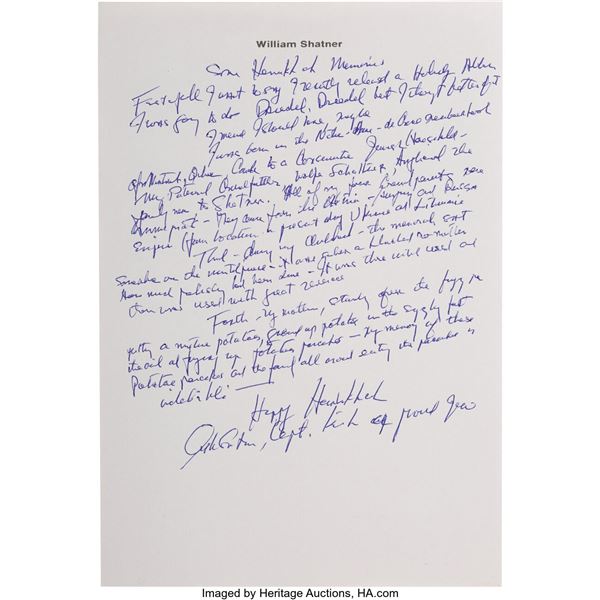 William Shatner
Some Hanukkah Memories
First of all I want to say I recently released a Holiday Album
I was going to do Dreidel, Dreidel but I thought better of it
I mean I should have, maybe
I was born in the Notre-Dame-de-Grace neighborhood
of Montreal, Quebec, Canada to a Conservative Jewish Household -
My Paternal Grandfather, Wolfe Schattner, Anglicized the
family name to Shatner. All of my four Grandparents were
immigrants - They came from the Austria - Hungary and Russian
Empires from locations in present day Ukraine and Lithuania
The - during my Childhood - the menorah sat
Someplace on the mantelpiece - it was
How much polishing had been done - It was
then was used with great reverence
Forth my mother, standing over the frying pan
with a mixture potatoes, Ground up potatoes in the sizzling fat
the oil of frying up potatoes pancakes - My memory of these
Potatoe pancakes and the family all around eating the pancakes is
indelible
Happy Hanukkah
Capt. Kirk a proud Jew
Imaged by Heritage Auctions, HA.com